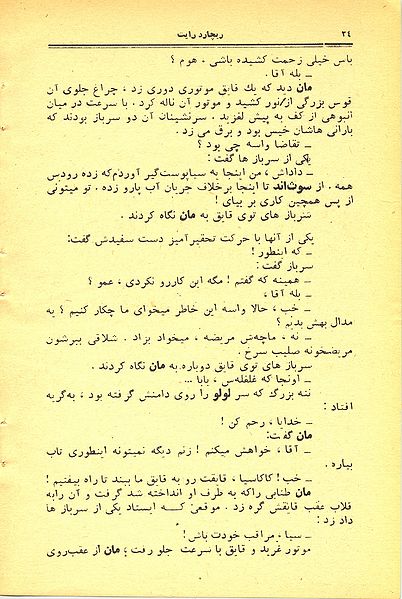 ۲٤ ریچارد رایت
باس خیلی زحمت کشیده باشی . هوم ؟
ــ بله آقا .
مان دید که یك قایق موتوری دوری زد ، چراغ جلوی آن
قوس بزرگی از/نور کشید و موتور آن ناله کرد . با سرعت در میان
انبوهی از کف به پیش لغزید . سرنشینان آن دو سرباز بودند که
بارانی هاشان خیس بود و برق می زد .
ــ تقاضا واسه چی بود ؟
یکی از سرباز ها گفت :
ــ داداش ، من اینجا یه سیاپوست‌گیر آوردم‌که زده رودس
همه . از سوث‌اند تا اینجا برخلاف جریان آب پارو زده . تو میتونی
از پس همچین کاری بر بیای !
سرباز های توی قایق به مان نگاه کردند .
یکی از آنها با حرکت تحقیرآمیز دست سفیدش گفت:
ــ که اینطور !
سرباز گفت :
ــ همینه که گفتم ! مگه این کاررو نکردی ، عمو ؟
ــ بله آقا ،
ــ خب ، حالا واسه این خاطر میخوای ما چکار کنیم ؟ یه
مدال بهش بدیم ؟
ــ نه ، ماچه‌ش مریضه ، میخواد بزاد . شلاقی ببرشون
مریضخونه صلیب سرخ .
سرباز های توی قایق دوباره به مان نگاه کردند .
ــ اونجا که غلغله‌س ، بابا ...
ننه بزرگ‌که که سر لولو را روی دامنش گرفته بود ، به‌گریه
افتاد :
ــ خدایا ، رحم کن !
مان گفت:
ــ آقا ، خواهش میکنم ! زنم دیگه نمیتونه اینطوری تاب
بیاره .
ــ خب ! کاکاسیا ، قایقت رو به قایق ما ببند تا راه بیفتیم !
مان طنابی راکه به طرف او انداخته شد گرفت و آن رابه
قلاب عقب قایقش گره زد . موقعی کــه ایستاد یکی از سرباز ها
داد زد :
ــ سیا ، مراقب خودت باش!
موتور غرید و قایق با سرعت جلو رفت ؛ مان از عقب‌روی